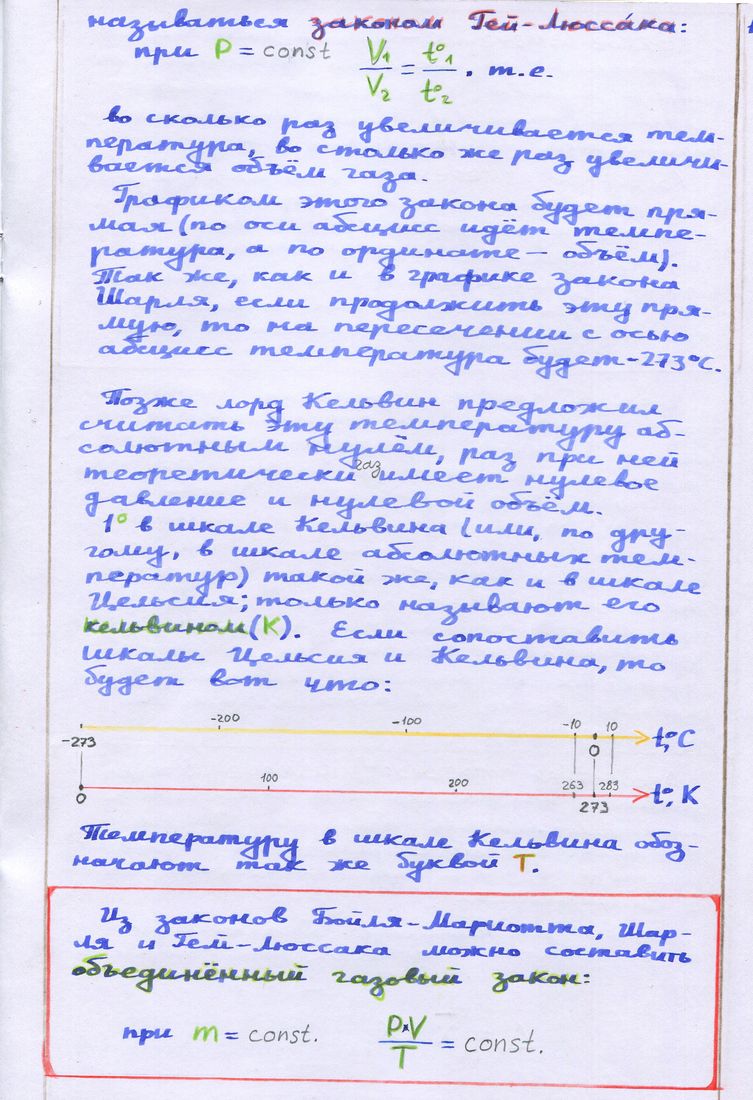 называться законом Гей-Люсса́ка:
при P = const V₁/V₂ = t°₁/t°₂, т.е.
во сколько раз увеличивается тем-
пература, во столько же раз увеличи-
вается объём газа.
Графиком этого закона будет пря-
мая (по оси абсцисс идёт темпе-
ратура, а по ординате – объём).
Так же, как и в графике закона
Шарля, если продолжить эту пря-
мую, то на пересечении с осью
абсцисс температура будет -273°C.
Позже лорд Кельвин предложил
считать эту температуру аб-
солютным нулём, раз при ней
теоретически газ имеет нулевое
давление и нулевой объём.
1° в шкале Кельвина (или, по дру-
гому, в шкале абсолютных тем-
ператур) такой же, как и в шкале
Цельсия; только называют его
кельвином (К). Если сопоставить
шкалы Цельсия и Кельвина, то
будет вот что:
-200 -100 -10 10
-273 0 t°, C
100 200 263 283
0 273 t°, K
Температуру в шкале Кельвина обоз-
начают так же буквой T.
Из законов Бойля-Мариотта, Шар-
ля и Гей-Люссака можно составить
объединённый газовый закон:
при m = const. P×V/T = const.